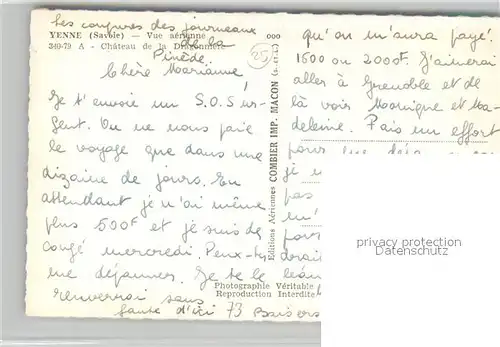 Les coupures des journeaux
de la
Pinède.
YENNE (Savoie) — Vue aérienne
249-79 A - Château de la Dragonnière
25
Chère Marianne
Je t'envoie un S.O.S ur-
gent. On ne nous paie
le voyage que dans une
dizaine de jours. En
attendant je n'ai même
plus 500F et je suis de
congé mercredi. Peux-tu
me dépanner. Je te le
renverrai sans
faute d'ici 73 Baisers
Editions Aériennes COMBIER IMP. MACON (S.-et-L.)
Photographie Véritable
Reproduction Interdite
qu'on m'aura payé.
1500 ou 2000F. J'aimerai
aller à Grenoble et de
là voir Monique et Ma-
deleine. Fais un effort
pour
je
pas
m'
privacy protection
Datenschutz